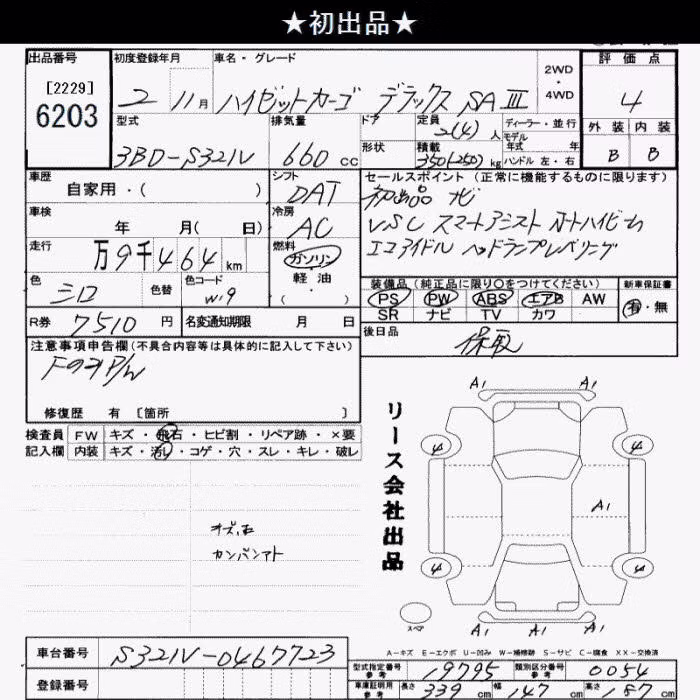 ★初出品★
出品番号
[2229]
6203
初度登録年月
2 11月
車名・グレード
ハイゼットカーゴ デラックス SAⅢ
2WD
・
4WD
評価点
4
外装 内装
B B
型式
3BD-S321V
排気量
660 cc
ドア
形状
定員
2(4) 人
積載
350(250) kg
ディーラー・並行
モデル
年式 年
ハンドル 左・右
車歴
自家用・( )
シフト
DAT
セールスポイント (正常に機能するものに限ります)
初出品 ナビ
VSC スマートアシスト オートハイビーム
エコアイドル ヘッドランプレベリング
車検
年 月( 日)
冷房
AC
走行
万9千464 km
燃料
ガソリン
・
軽油
・
( )
色
シロ
色替
色コード
W.9
装備品 (純正品に限り○をつけてください)
PS PW ABS エアB AW
SR ナビ TV カワ
新車保証書
有・無
R券
7510 円
名変通知期限 月 日
後日品
保取
注意事項申告欄 (不具合内容等は具体的に記入して下さい)
修復歴 有 [箇所 ]
検査員 FW キズ・飛石・ヒビ割・リペア跡・×要
記入欄 内装 キズ・汚レ・コゲ・穴・スレ・キレ・破レ
リース会社出品
A1 A1
4 4
A1
4 4
A1 A1 A1
スペア
カンバンアト
A-キズ E-エクボ U-凹み W-補修跡 S-サビ C-腐食 XX-交換済
車台番号
S321V-0467723
登録番号
型式指定番号
参考
19795
類別区分番号
参考
0054
車庫証明用
参考
長さ 339 cm 幅 147 cm 高さ 187 cm